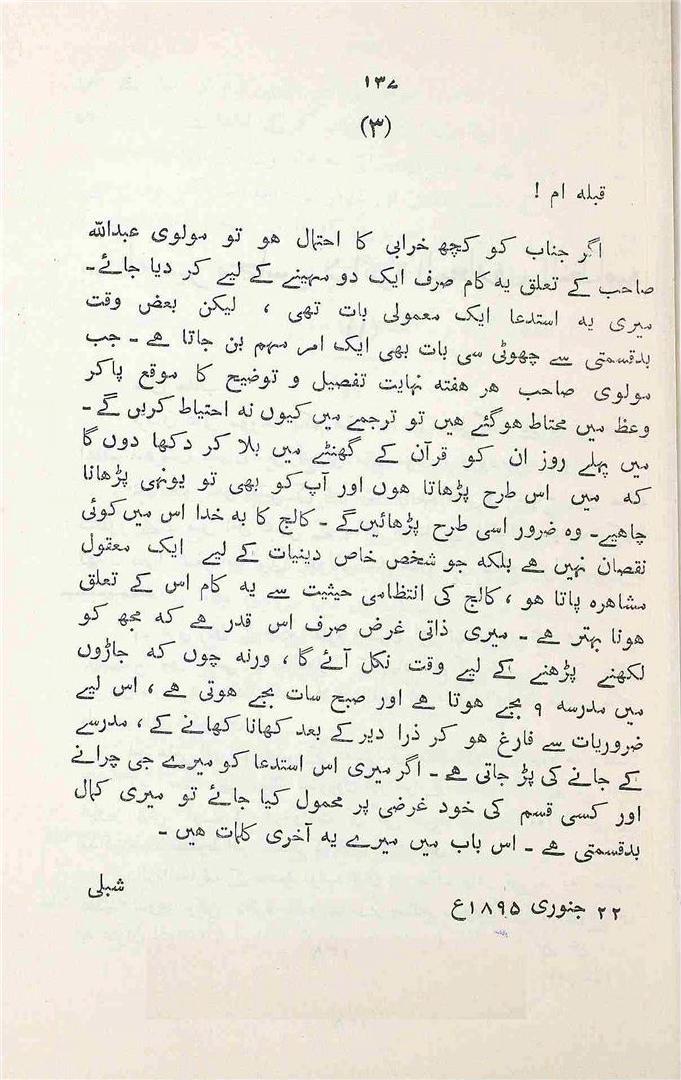 ۱۳۷
(۳)
قبلہ ام !
اگر جناب کو کچھ خرابی کا احتمال ہو تو مولوی عبداللہ
صاحب کے تعلق یہ کام صرف ایک دو مہینے کے لیے کر دیا جائے۔
میری یہ استدعا ایک معمولی بات تھی ، لیکن بعض وقت
بدقسمتی سے چھوٹی سی بات بھی ایک امر مہم بن جاتا ہے ۔ جب
مولوی صاحب ہر ہفتہ نہایت تفصیل و توضیح کا موقع پاکر
وعظ میں محتاط ہوگئے ہیں تو ترجمے میں کیوں نہ احتیاط کریں گے ۔
میں پہلے روز ان کو قرآن کے گھنٹے میں بلا کر دکھا دوں گا
کہ میں اس طرح پڑھاتا ہوں اور آپ کو بھی تو یونہی پڑھانا
چاہیے۔ وہ ضرور اسی طرح پڑھائیں گے ۔ کالج کا بہ خدا اس میں کوئی
نقصان نہیں ہے بلکہ جو شخص خاص دینیات کے لیے ایک معقول
مشاہرہ پاتا ہو ، کالج کی انتظامی حیثیت سے یہ کام اس کے تعلق
ہونا بہتر ہے ۔ میری ذاتی غرض صرف اس قدر ہے کہ مجھ کو
لکھنے پڑھنے کے لیے وقت نکل آئے گا ، ورنہ چوں کہ جاڑوں
میں مدرسہ ۹ بجے ہوتا ہے اور صبح سات بجے ہوتی ہے ، اس لیے
ضروریات سے فارغ ہو کر ذرا دیر کے بعد کھانا کھانے کے ، مدرسے
کے جانے کی پڑ جاتی ہے ۔ اگر میری اس استدعا کو میرے جی چرانے
اور کسی قسم کی خود غرضی پر محمول کیا جائے تو میری کمال
بدقسمتی ہے ۔ اس باب میں میرے یہ آخری کلمات ہیں ۔
شبلی
۲۲ جنوری ۱۸۹۵ع